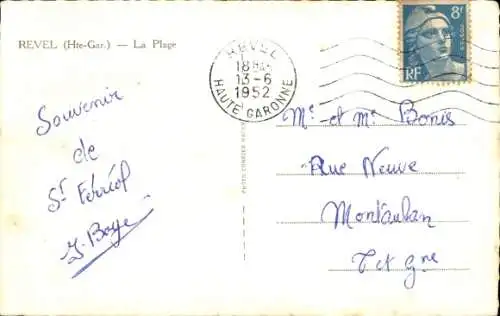 REVEL (Hte-Gar.) — La Plage
REVEL
18H
13-6
1952
HAUTE GARONNE
8F
RF
Souvenir
de
St Férréol
J. Boye
Mr et Me Bonis
Rue Neuve
Montauban
T et Gne